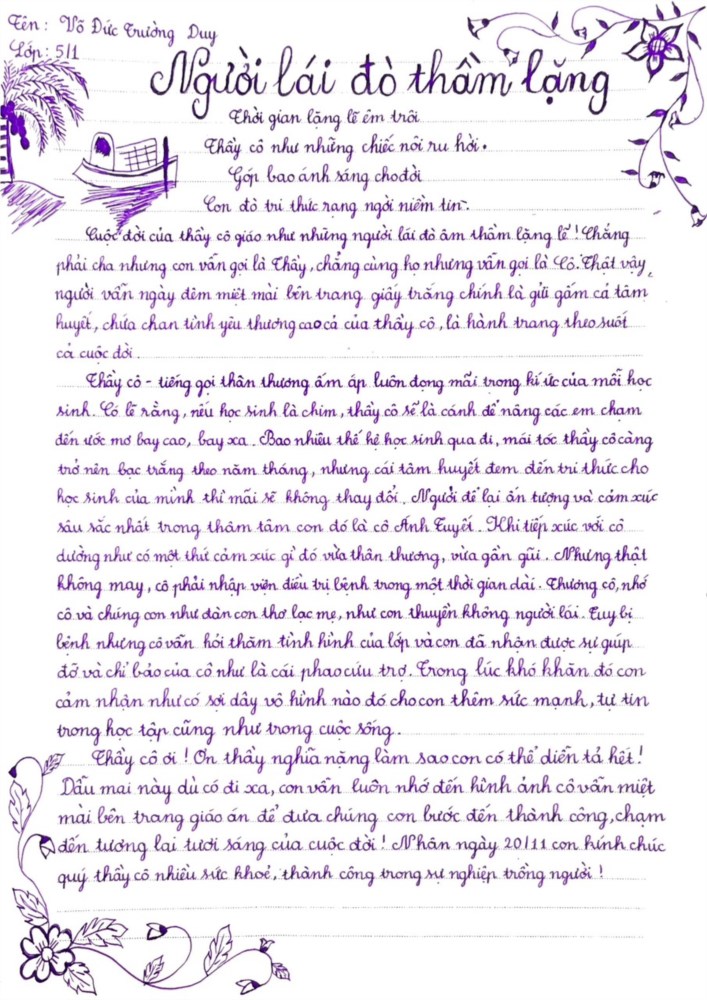 Tên: Võ Đức Trường Duy
Lớp: 5/1
Người lái đò thầm lặng
Thời gian lặng lẽ êm trôi
Thầy cô như những chiếc nôi ru hời.
Góp bao ánh sáng cho đời
Con đò tri thức rạng ngời niềm tin.
Cuộc đời của thầy cô giáo như những người lái đò âm thầm lặng lẽ! Chẳng
phải cha nhưng con vẫn gọi là Thầy, chẳng cùng họ nhưng vẫn gọi là Cô. Thật vậy,
người vẫn ngày đêm miệt mài bên trang giấy trắng chính là gửi gắm cả tâm
huyết, chứa chan tình yêu thương cao cả của thầy cô, là hành trang theo suốt
cả cuộc đời.
Thầy cô - tiếng gọi thân thương ấm áp luôn đọng mãi trong kí ức của mỗi học
sinh. Có lẽ rằng, nếu học sinh là chim, thầy cô sẽ là cánh để nâng các em chạm
đến ước mơ bay cao, bay xa. Bao nhiêu thế hệ học sinh qua đi, mái tóc thầy cô càng
trở nên bạc trắng theo năm tháng, nhưng cái tâm huyết đem đến tri thức cho
học sinh của mình thì mãi sẽ không thay đổi. Người để lại ấn tượng và cảm xúc
sâu sắc nhất trong thâm tâm con đó là cô Ánh Tuyết. Khi tiếp xúc với cô
dường như có một thứ cảm xúc gì đó vừa thân thương, vừa gần gũi. Nhưng thật
không may, cô phải nhập viện điều trị bệnh trong một thời gian dài. Thương cô, nhớ
cô và chúng con như đàn con thơ lạc mẹ, như con thuyền không người lái. Tuy bị
bệnh nhưng cô vẫn hỏi thăm tình hình của lớp và con đã nhận được sự giúp
đỡ và chỉ bảo của cô như là cái phao cứu trợ. Trong lúc khó khăn đó con
cảm nhận như có sợi dây vô hình nào đó cho con thêm sức mạnh, tự tin
trong học tập cũng như trong cuộc sống.
Thầy cô ơi! Ơn thầy nghĩa nặng làm sao con có thể diễn tả hết!
Dẫu mai này dù có đi xa, con vẫn luôn nhớ đến hình ảnh cô vẫn miệt
mài bên trang giáo án để đưa chúng con bước đến thành công, chạm
đến tương lai tươi sáng của cuộc đời! Nhân ngày 20/11 con kính chúc
quý thầy cô nhiều sức khoẻ, thành công trong sự nghiệp trồng người!